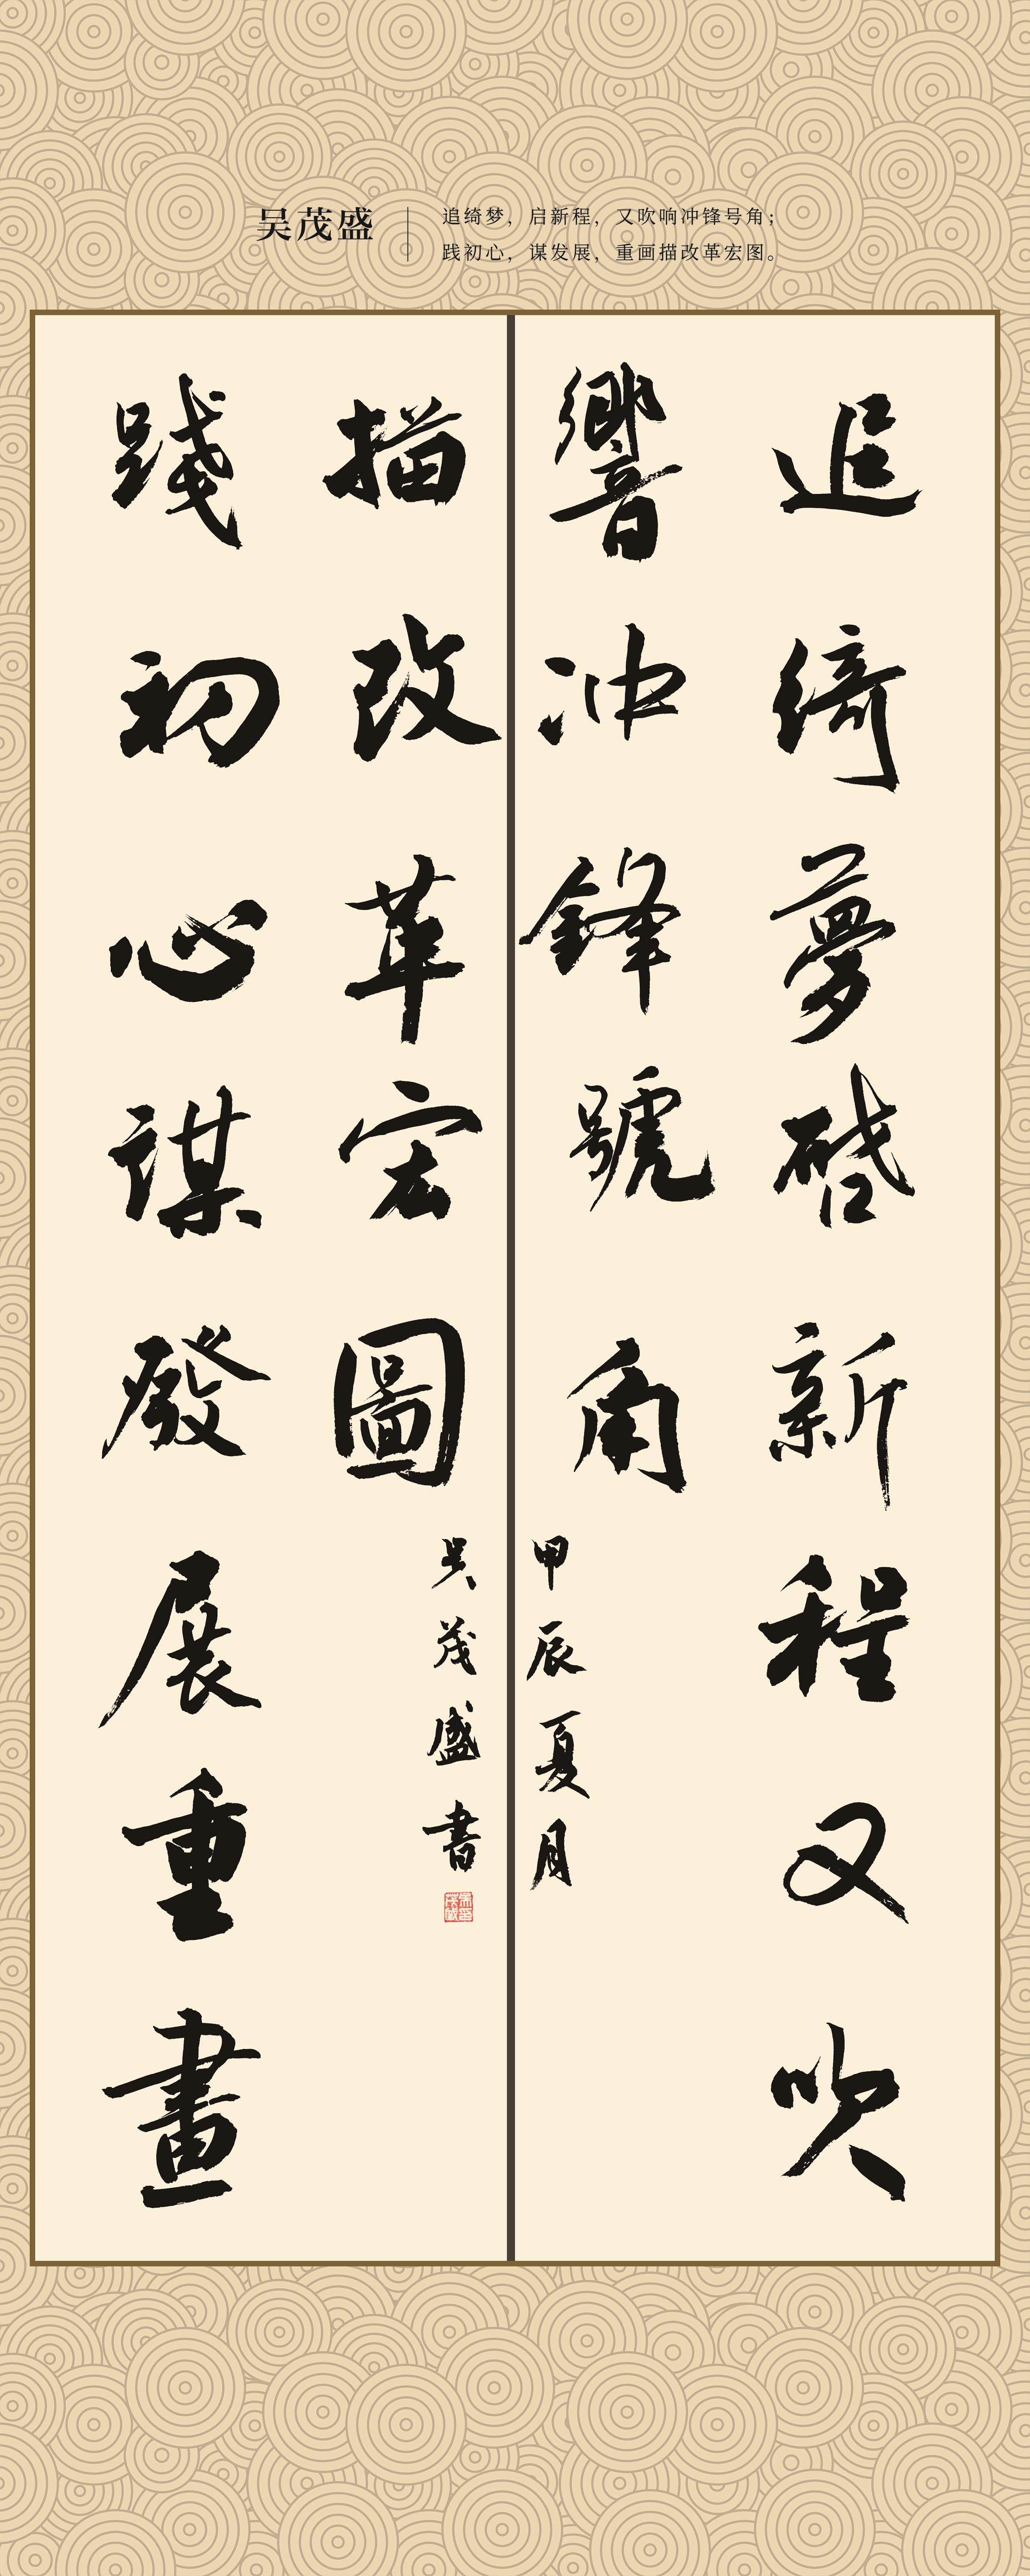 吴茂盛
追绮梦，启新程，又吹响冲锋号角；
践初心，谋发展，重画描改革宏图。
追綺夢啓新程又吹
響冲鋒號角
甲辰夏月
踐初心謀發展重畫
描改革宏圖
吴茂盛書